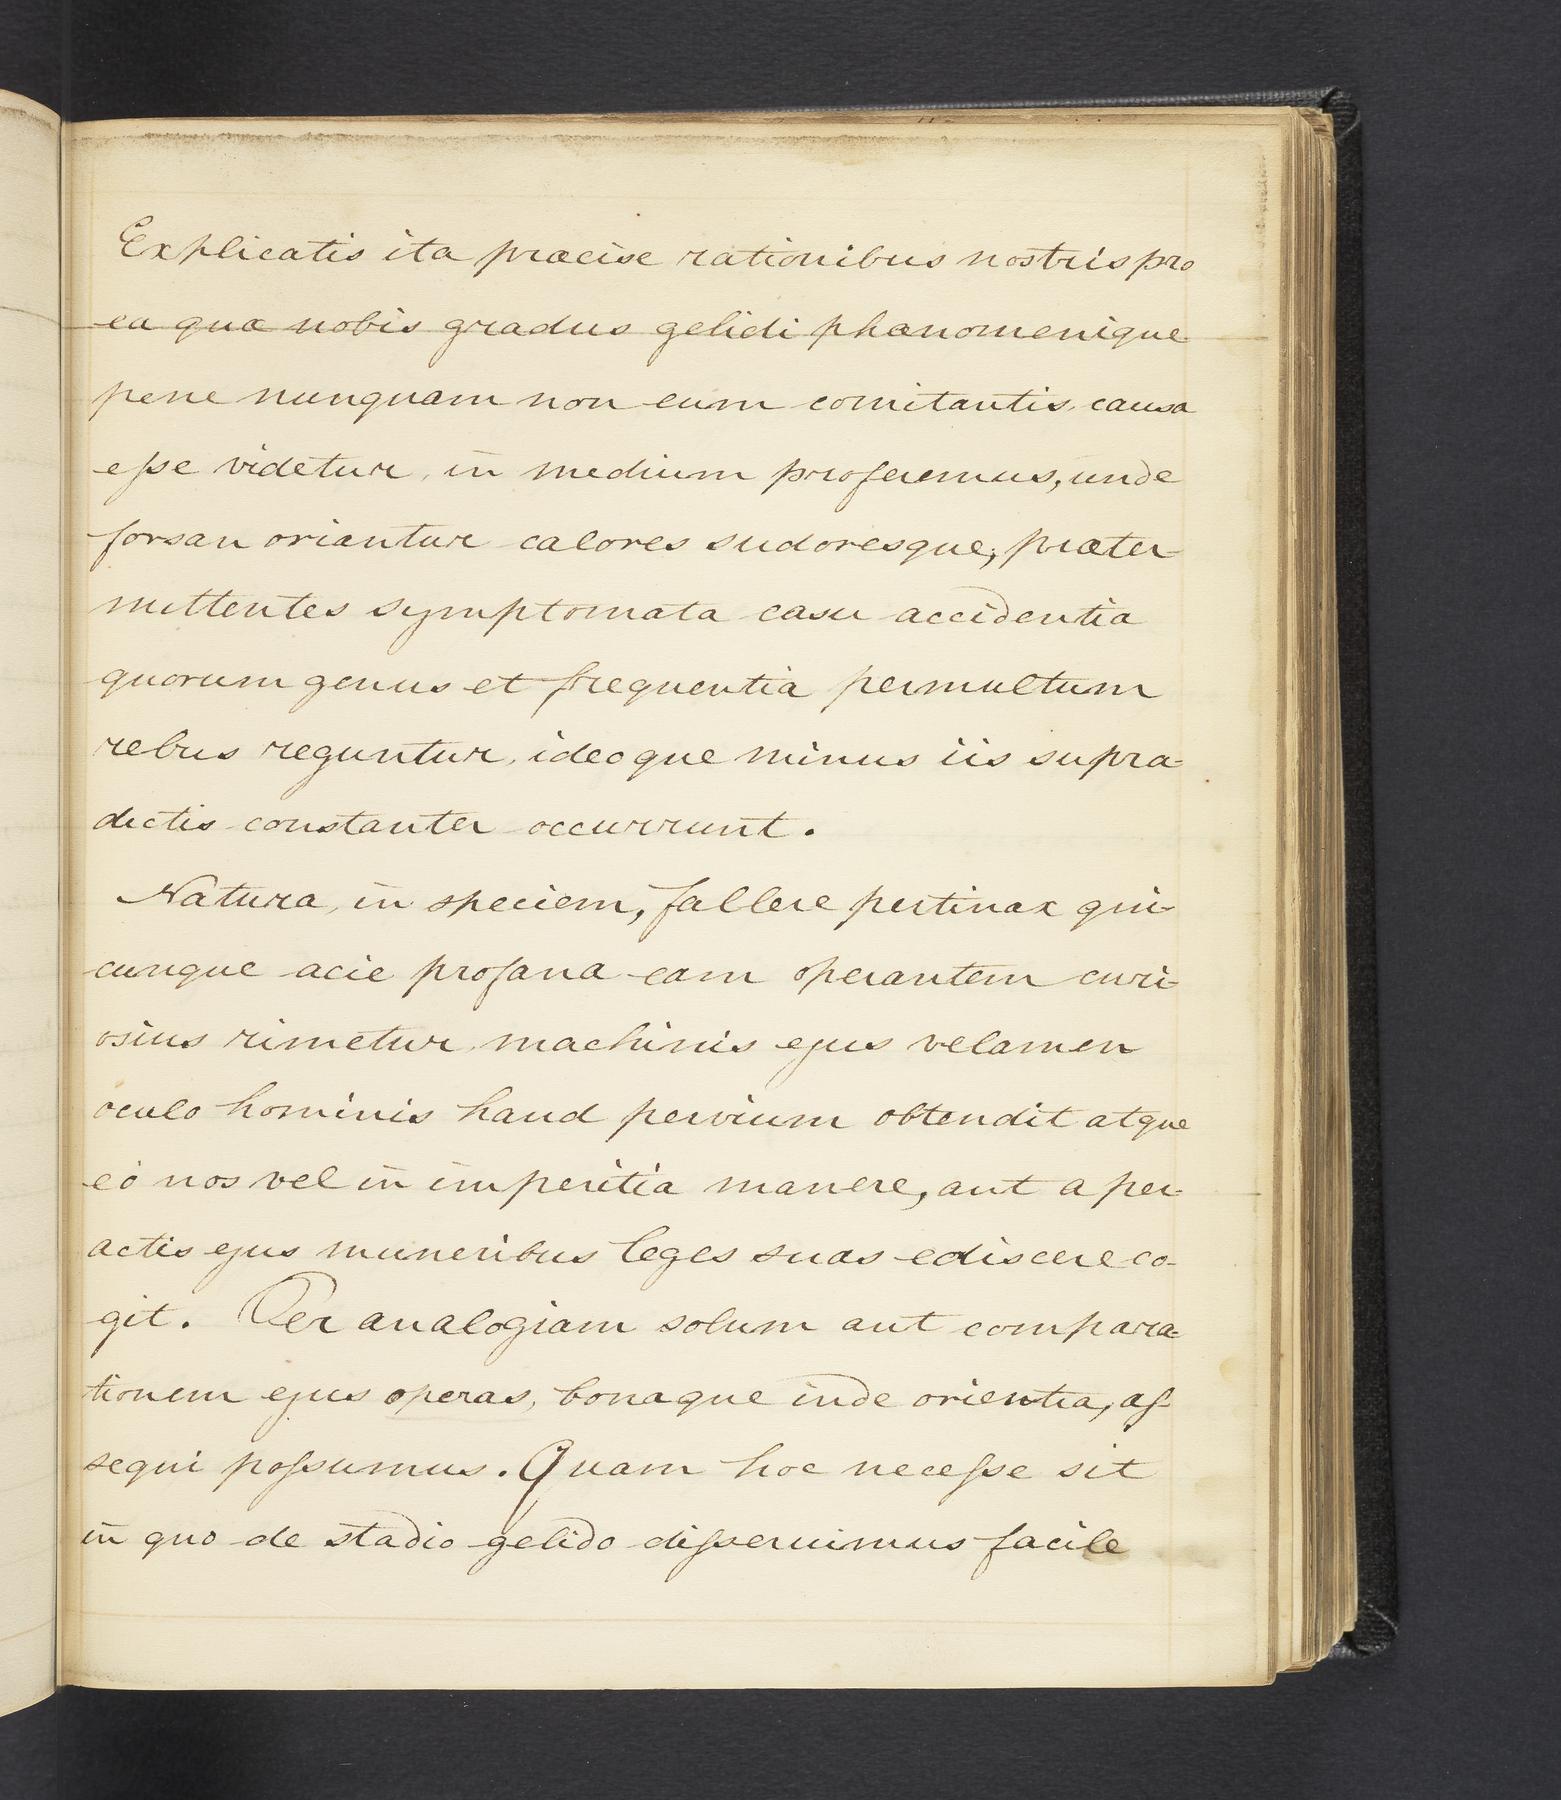 Explicatis ita præcise rationibus nostris pro
ea quæ nobis gradus gelidi phænomenique
pene nunquam non eum comitantis, causa
eſse videtur, in medium proferemus, unde
forsan oriantur calores sudoresque, præter-
mittentes symptomata casu accidentia
quorum genus et frequentia permultum
rebus reguntur, ideoque minus iis supra-
dictis constanter occurrunt.
Natura, in speciem, fallere pertinax qui-
cunque acie profana eam operantem curi-
osius rimetur, machinis ejus velamen
oculo hominis haud pervium obtendit atque
eò nos vel in imperitia manere, aut a per-
actis ejus muneribus leges suas ediscere co-
git. Per analogiam solum aut compara-
tionem ejus operas, bonaque inde orientia, aſ-
sequi poſsumus. Quam hoc neceſse sit
in quo de stadio gelido diſseruimus facile